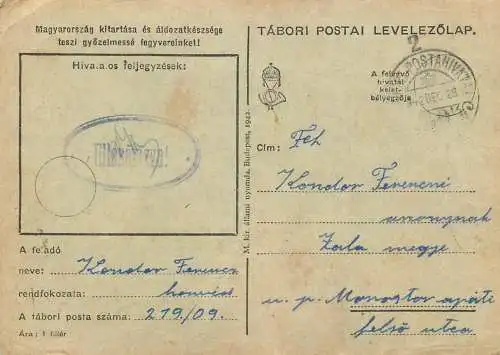 Magyarország kitartása és áldozatkészsége
teszi győzelmessé fegyvereinket!
Hivatalos feljegyzések:
Ellenőrizve!
A feladó
neve: Kondor Ferenc
rendfokozata: honvéd
A tábori posta száma: 219/09.
Ára: 1 fillér
M. kir. állami nyomda, Budapest, 1942.
TÁBORI POSTAI LEVELEZŐLAP.
2
A felvevő
hivatal
kelet-
bélyegzője
DEC. 28
Cím:
Kondor Ferencné
asszonynak
Zala megye
u. p. Monostor apáti
felső utca